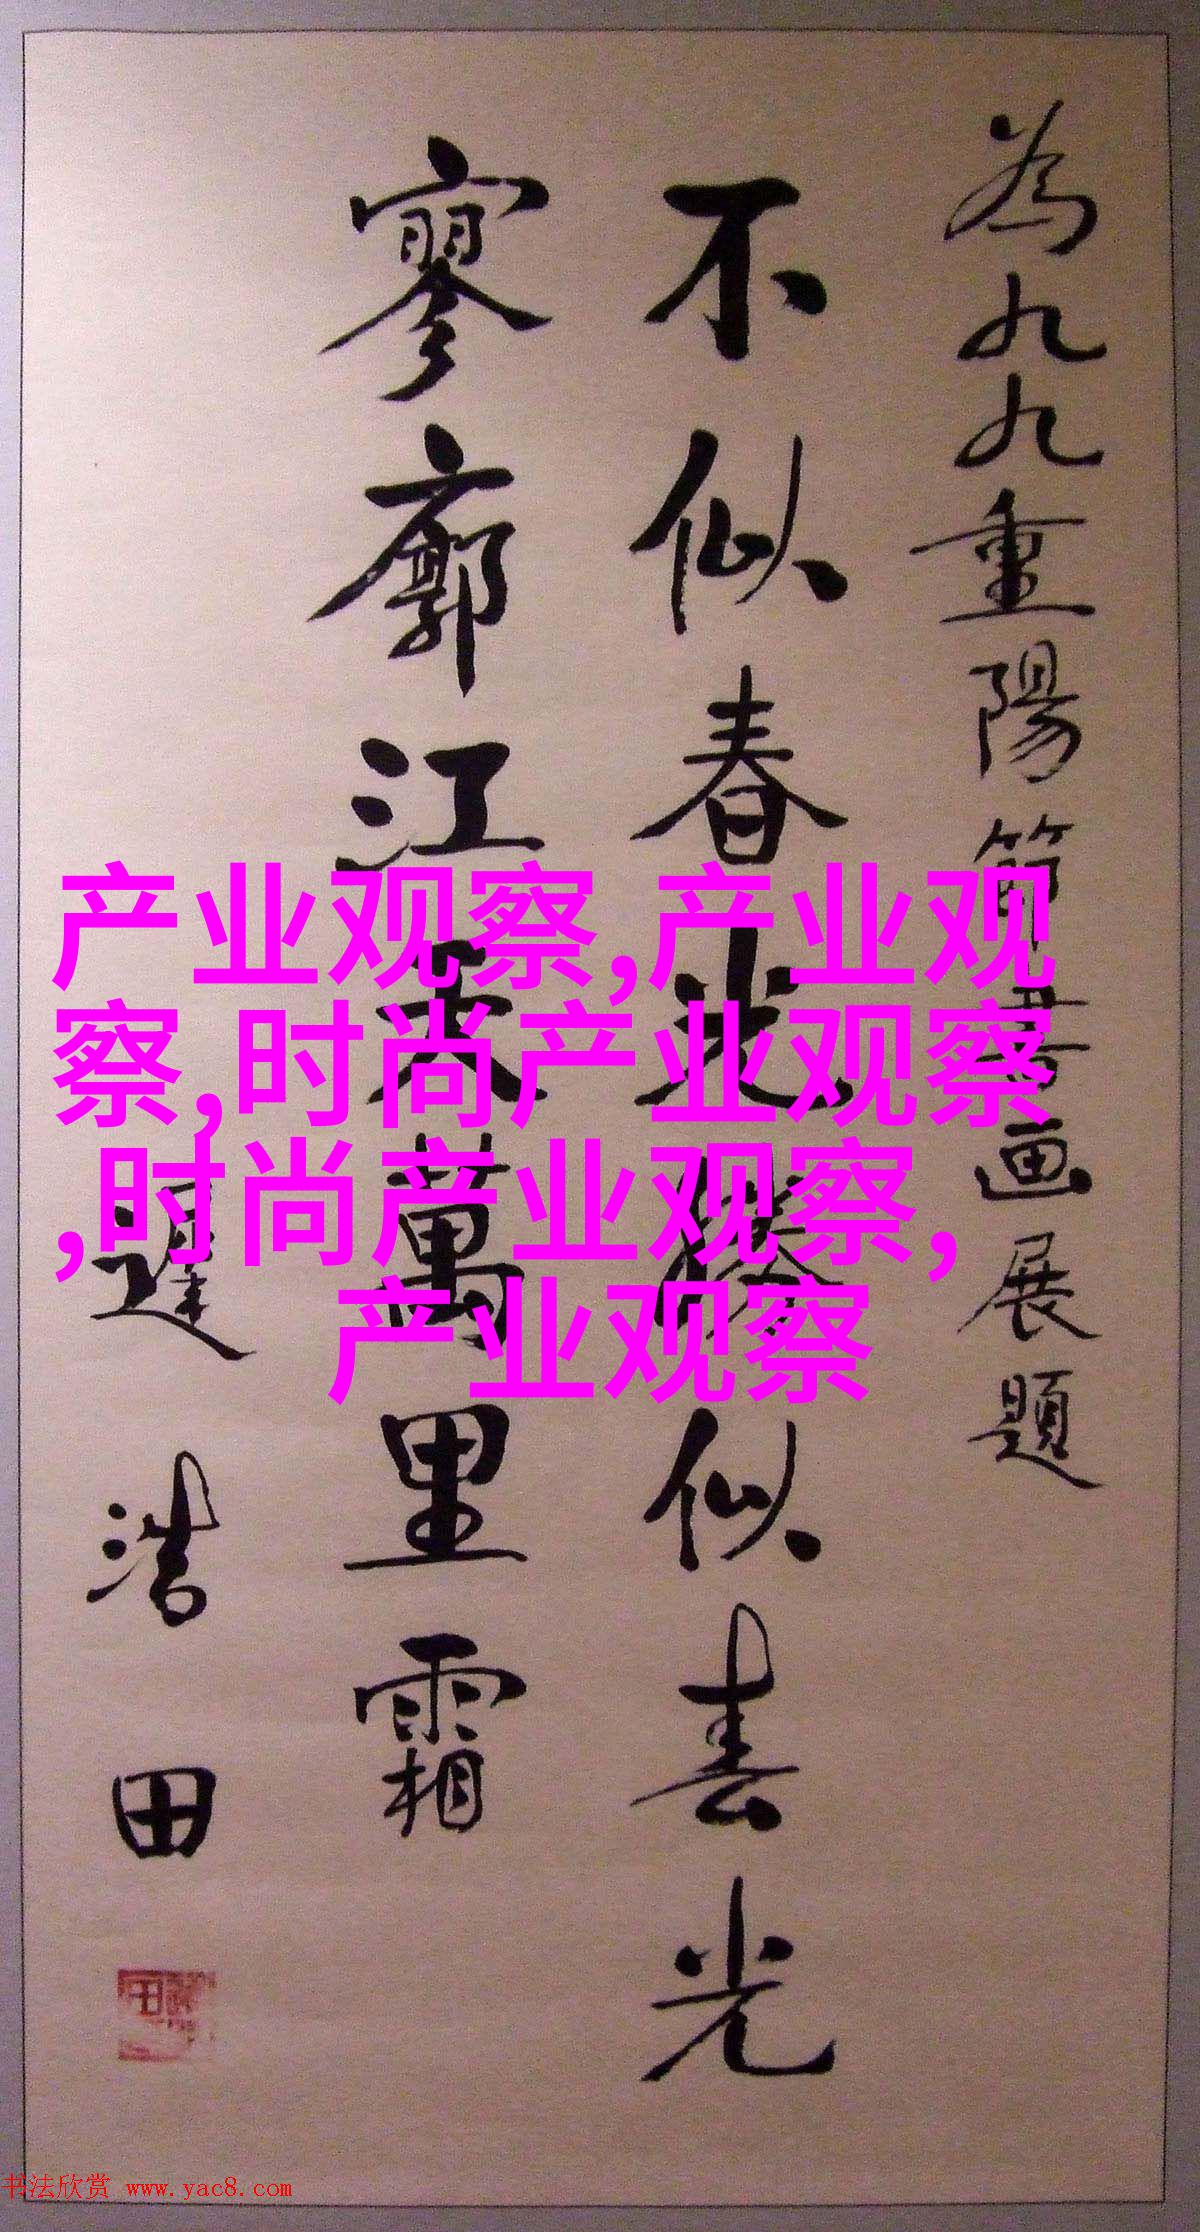 為九九重陽節書画展題
不似春光勝似春光
寥廓江天萬里霜
遲浩田
产业观察,产业观
察,时尚产业观察
,时尚产业观察,
产业观察
书法欣赏 www.yac8.com